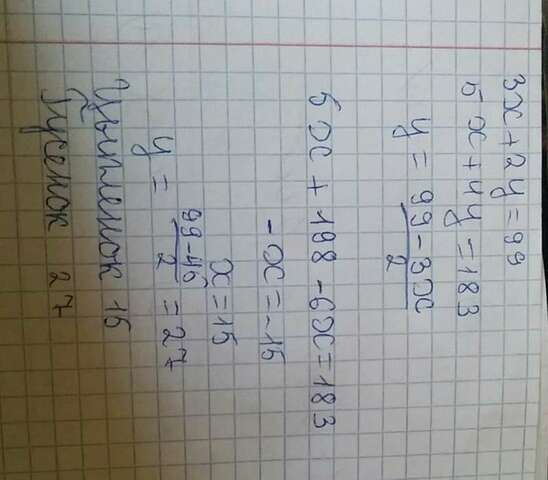 3x + 2y = 99
5x + 4y = 183
y = 99 - 3x / 2
5x + 198 - 6x = 183
-x = -15
x = 15
y = 99 - 45 / 2 = 27
Цыпленок 15
Гусенок 27